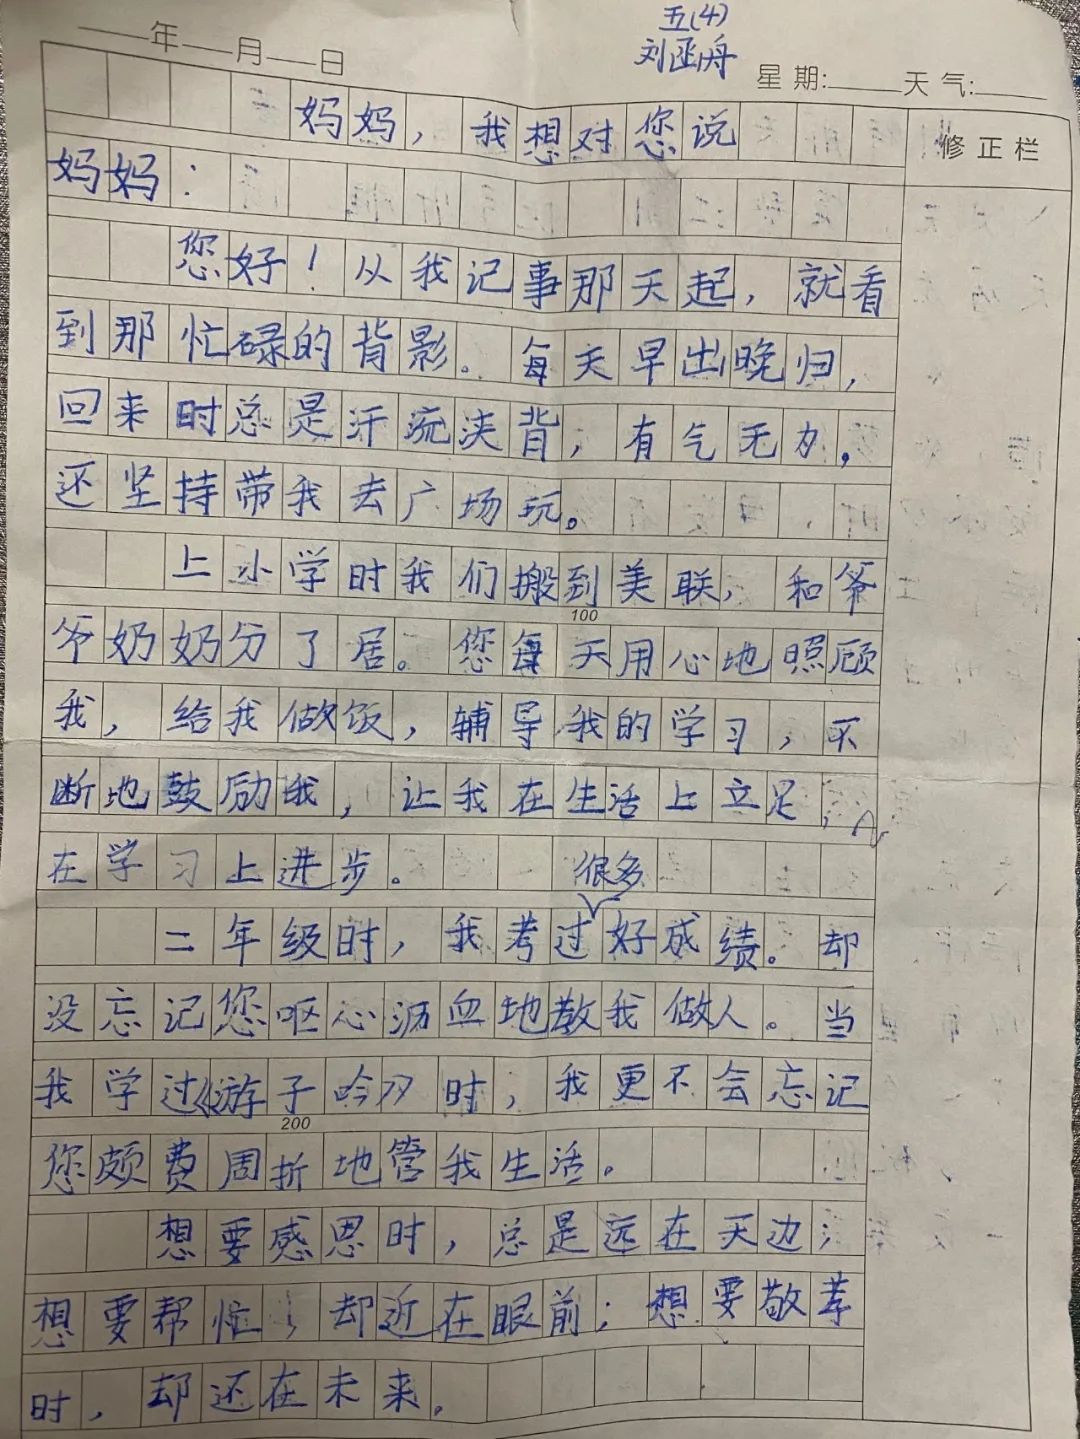 五(4)
刘函舟
——年——月——日
星期:_____天气:_____
修正栏
妈妈，我想对您说
妈妈：
您好！从我记事那天起，就看
到那忙碌的背影。每天早出晚归，
回来时总是汗流浃背，有气无力，
还坚持带我去广场玩。
上小学时我们搬到美联，和爷
100
爷奶奶分了居。您每天用心地照顾
我，给我做饭，辅导我的学习，不
断地鼓励我，让我在生活上立足，
在学习上进步。
二年级时，我考过很多好成绩。却
没忘记您呕心沥血地教我做人。当
我学过《游子吟》时，我更不会忘记
200
您颇费周折地管我生活。
想要感恩时，总是远在天边；
想要帮忙，却近在眼前；想要敬孝
时，却还在未来。